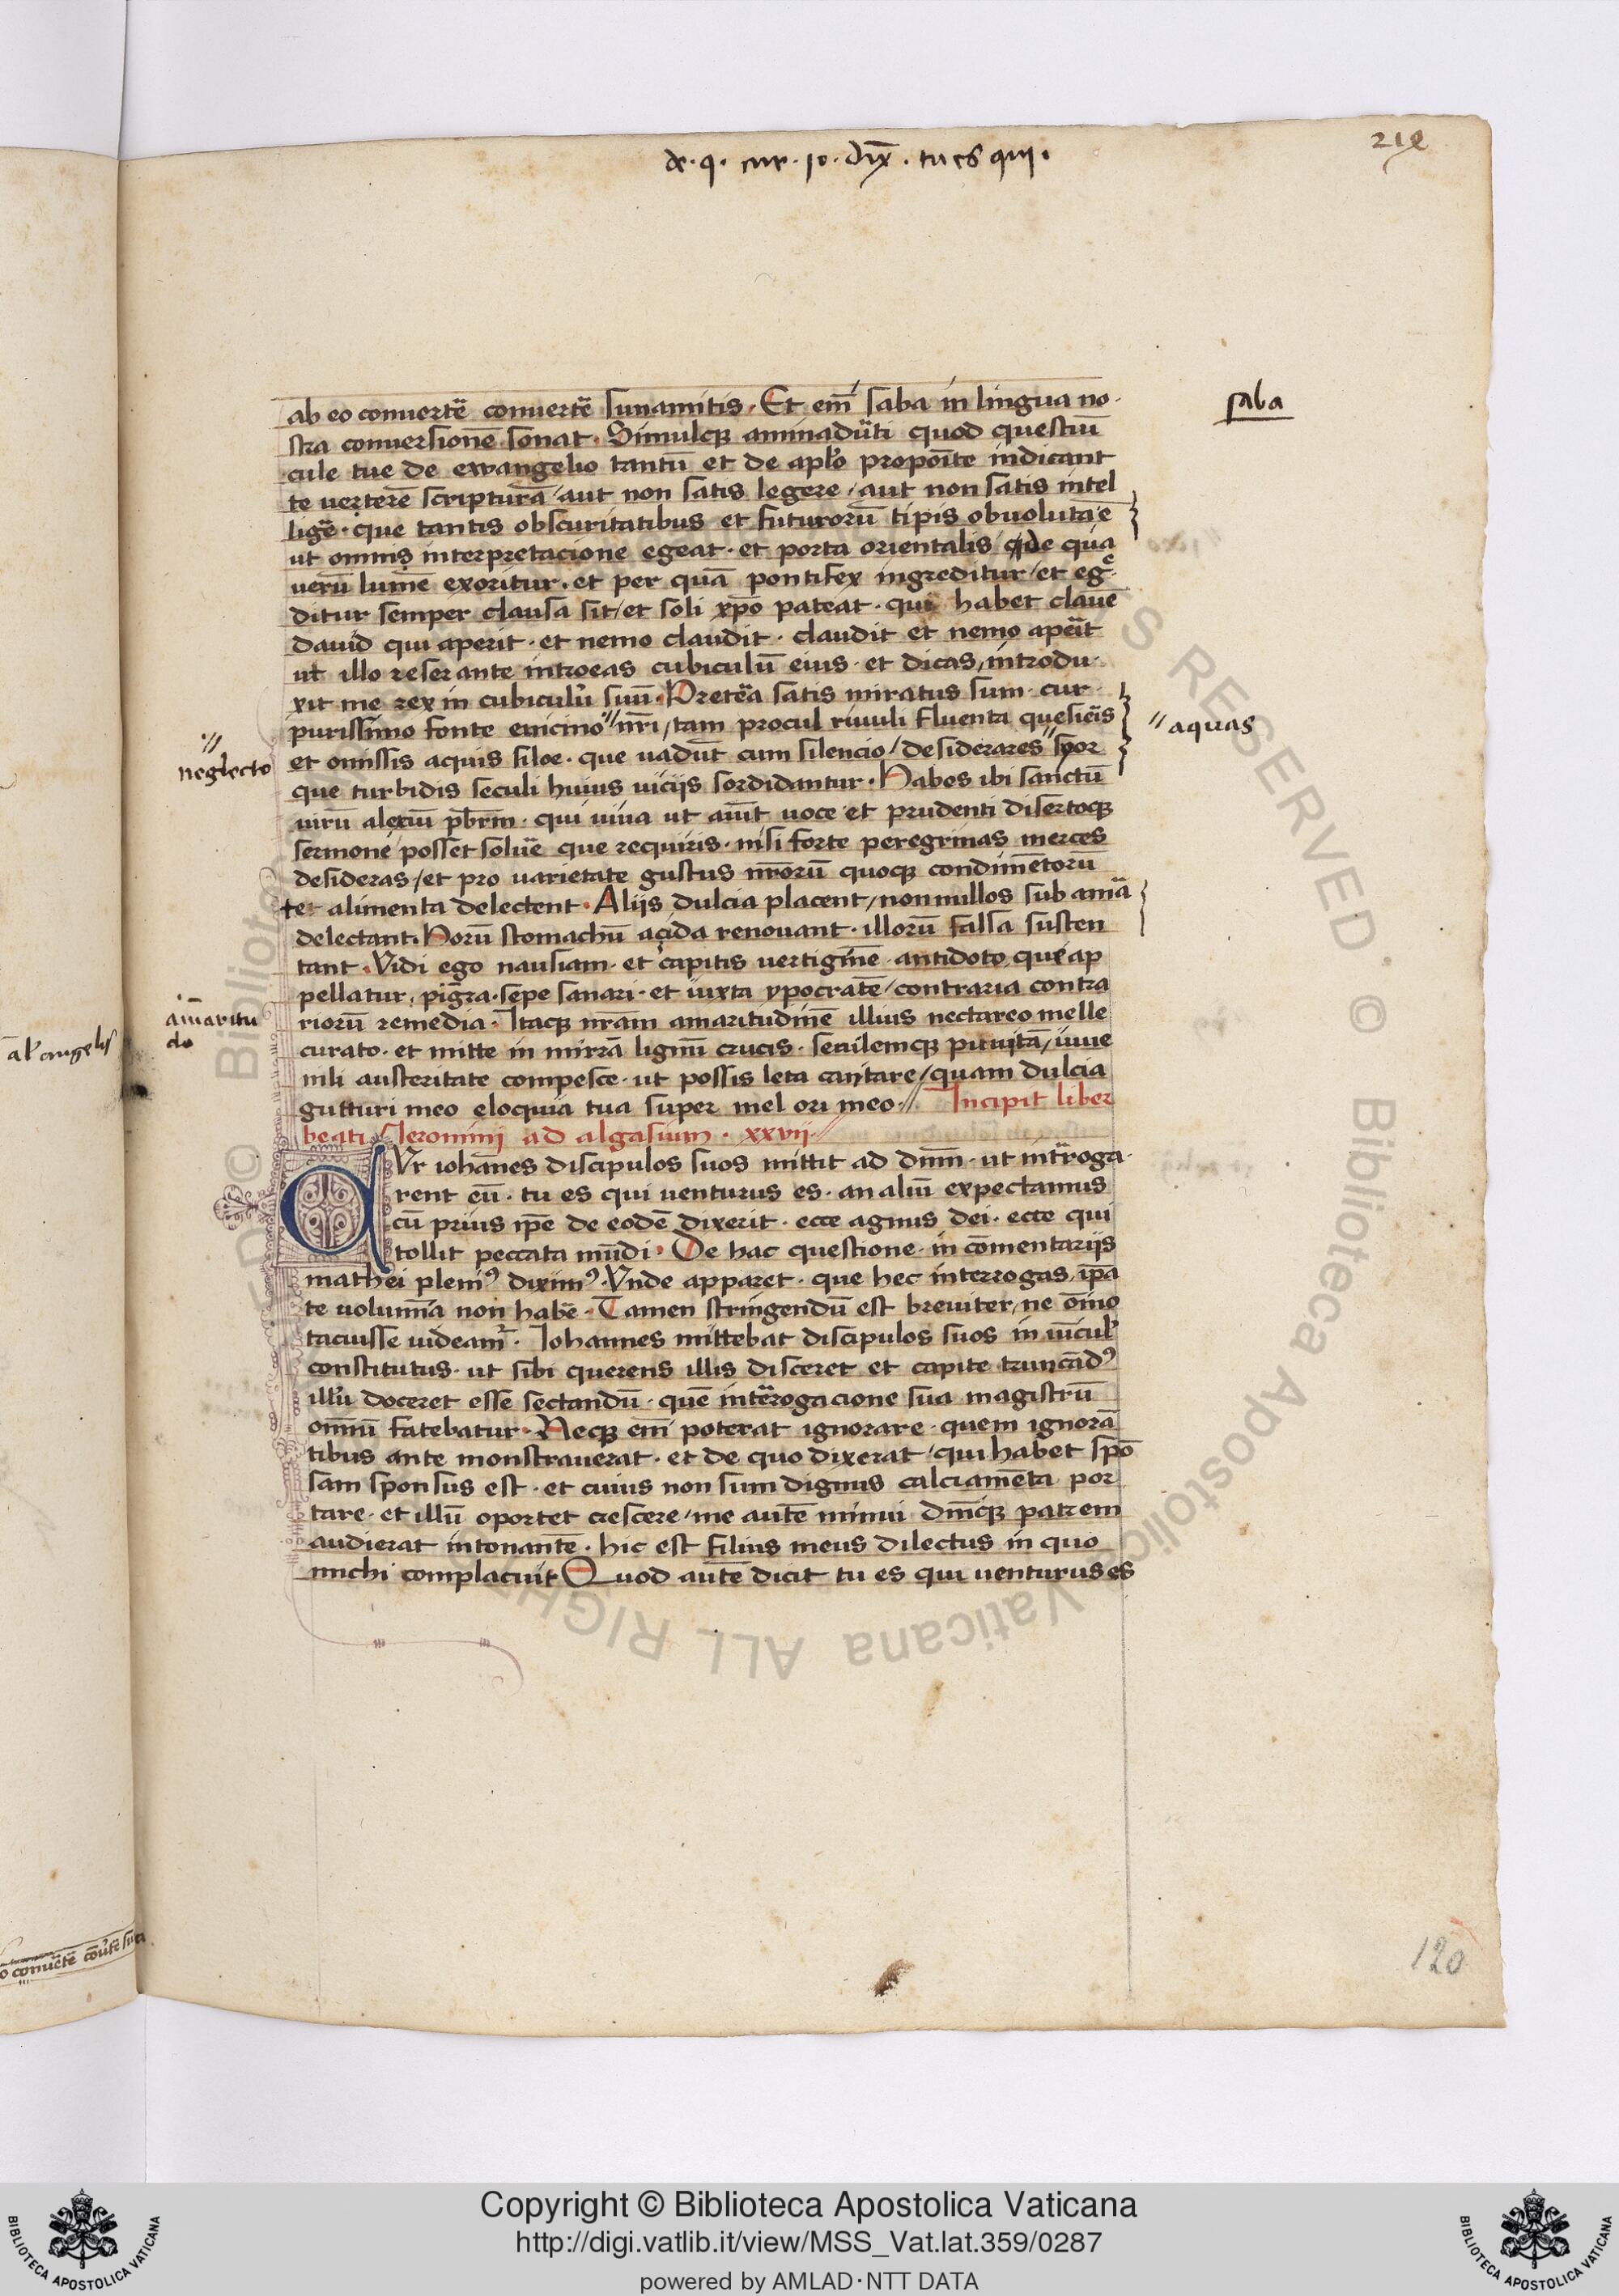 de · q · cur · io · dix̄ · tu es qui ·
ab eo conuertē conuertē sunamitis · Et em̄ saba in lingua no-
saba
stra conuersionē sonat · Simulq3 aminadūti quod questiū
cule tue de ewangelio tantū et de aplo proposite indicant
te ueterē scripturā / aut non satis legere / aut non satis intel
ligē · que tantis obscuritatibus et futurorū tipis obuoluta ē
ut omnis interpretacione egeat · et porta orientalis / de qua
uerū lumē exoritur · et per quā pontifex ingreditur / et eḡ
ditur semper clausa sit / et soli xpō pateat · qui habet clauē
dauid qui aperit · et nemo claudit · claudit et nemo apeit
ut illo reserante introeas cubiculū eius · et dicas / introdu-
xit me rex in cubiculū suū · Pretea satis miratus sum · cur
purissimo fonte euicino // nr̄i / tam procul riuuli fluenta quesieis
// aquas
// neglecto
et omissis aquis siloe · que uadūt cum silencio / desiderares // syor
que turbidis seculi huius uicijs sordidantur · Habes ibi sanctū
uirū alexiū pb̄rm · qui uiua ut aiūt uoce et prudenti disertoq3
sermone posset soluē que requiris · nisi forte peregrinas merces
desideras / et pro uarietate gustus nr̄orū quoq3 condimētorū
te alimenta delectent · Alijs dulcia placent / nonnullos sub amā
delectant · Horū stomachū acida renouant · illorū salsa susten
tant · Vidi ego nausiam · et capitis uertiginē · antidoto que ap
pellatur pigra · sepe sanari · et iuxta ypocratē / contraria contra
amaritu
do
riorū remedia · Itaq3 nr̄am amaritudinē illius nectareo melle
curato · et mitte in mirrā lignū crucis · senilemq3 pituitā / iuue
nili austeritate compesce · ut possis leta cantare / quam dulcia
gutturi meo eloquia tua super mel ori meo // Incipit liber
beati Jeronimi ad algasiam · xxvii //
QVr iohānes discipulos suos mittit ad dn̄m · ut int̄roga-
rent eū · tu es qui uenturus es · an aliū expectamus
cū prius ip̄e de eodē dixerit · ecce agnus dei · ecce qui
tollit peccata mūdi · De hac questione · in cōmentarijs
mathei pleni9 diximꝰ · Vnde apparet · que hec interrogas / ip̄a
te uolumīa non habē · Tamen stringendū est breuiter / ne oīno
tacuisse uideam̄ · Johannes mittebat discipulos suos in uīcul'
constitutus · ut sibi querens illis disceret et capite truncādꝰ
illū doceret esse sectandū · quē int̄rogacione sua magistrū
omnū fatebatur · Neq3 em̄ poterat ignorare · quem ignorā
tibus ante monstrauerat · et de quo dixerat / qui habet spō
sam sponsus est · et cuius non sum dignus calciamēta por
tare · et illū oportet crescere / me autē minui dm̄q3 patrem
audierat intonantē · hic est filius meus dilectus in quo
michi complacuit Quod autē dicit tu es qui uenturus es
120
al' angelis
Copyright © Biblioteca Apostolica Vaticana
http://digi.vatlib.it/view/MSS_Vat.lat.359/0287
powered by AMLAD·NTT DATA
BIBLIOTECA APOSTOLICA VATICANA
BIBLIOTECA APOSTOLICA VATICANA